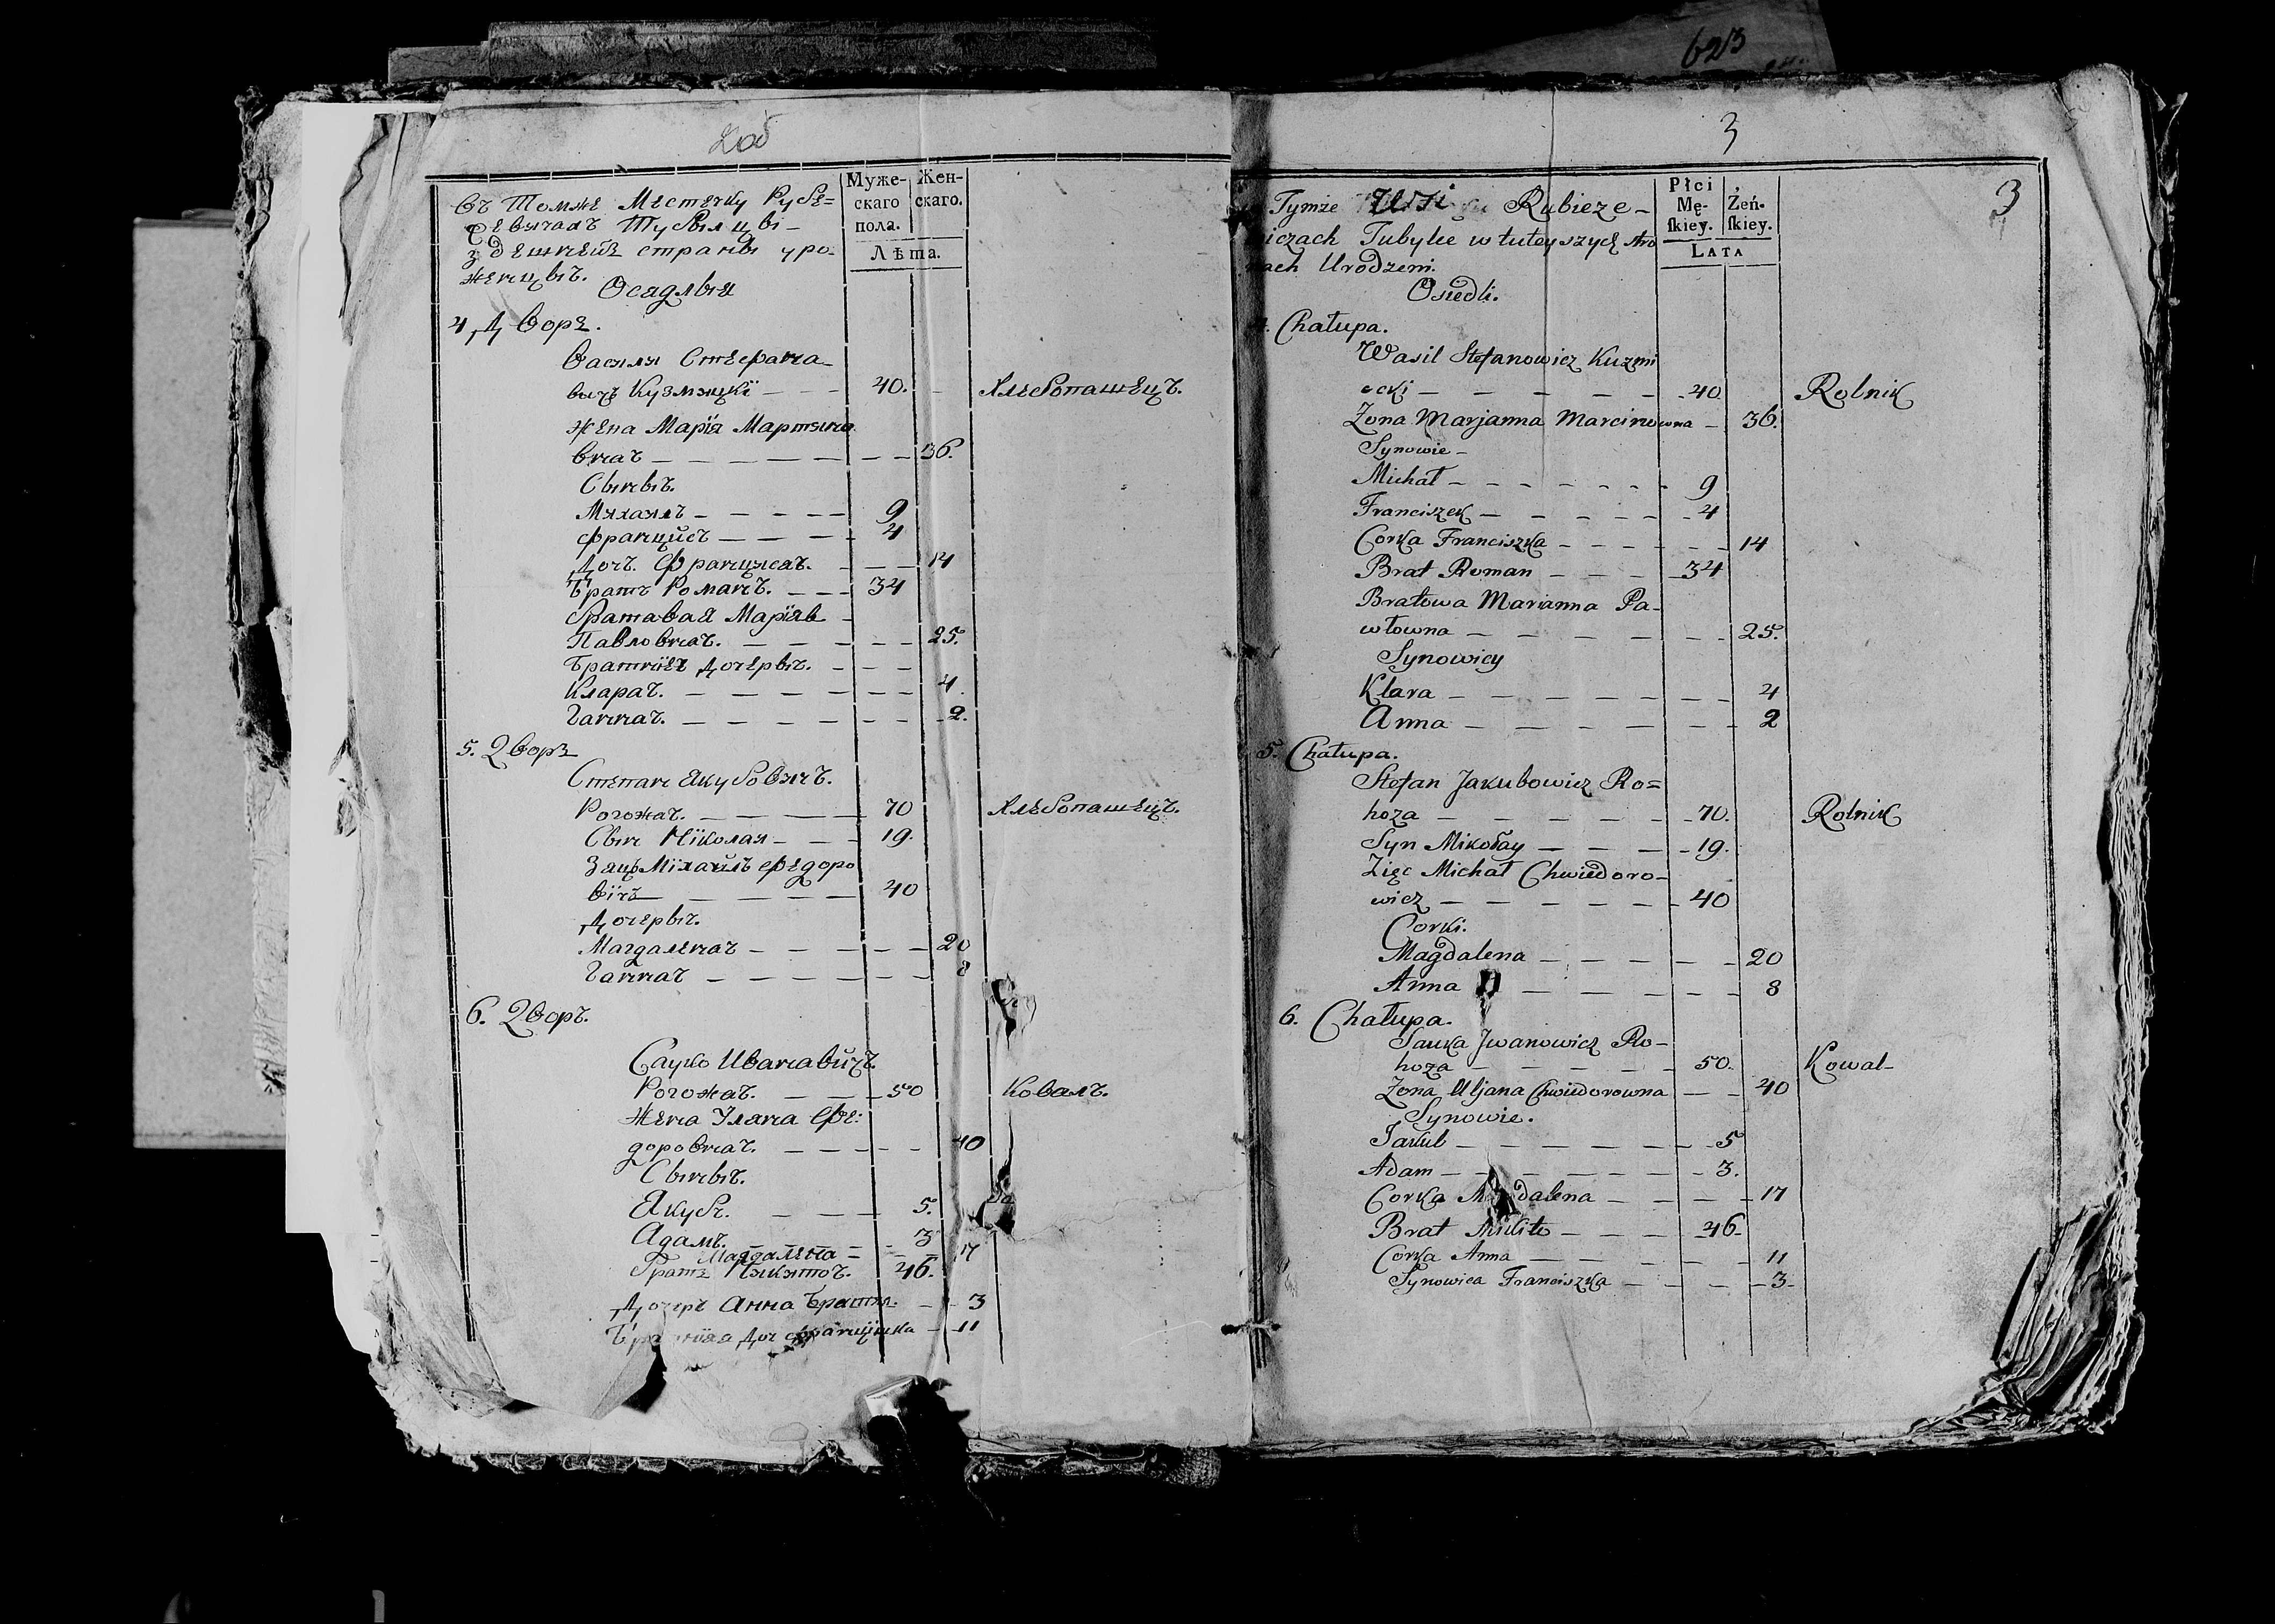 623
2об
Въ Томже Местечку Рубе=
жевичахъ Тубылцы
здешнейз страны уро-
женцыъ.
Осядлыя
Муже-
скаго
пола.
Жен-
скаго.
Лѣта.
4, Дворъ.
Василя Стефана-
вычъ Кузмэцкї — — 40. Хлебопашецъ.
жена Марїя Мартына
внаъ — — — — — — — 36.
Сынвъ.
Михаялъ — — — — — 9
францйсъ — — — — 4
Дочъ. Францискаъ. — — — 14
Братъ Романъ. — — — 34
братавая Марїяв —
Павловнаъ. — — — — — 25.
Братнїех дочерыъ. — — —
Клараъ. — — — — — — 4.
Ганнаъ. — — — — — — — 2.
5. Дворъ
Степанъ Якубовичъ.
Рогожаъ. — — — — — 70 Хлебопашецъ.
Сынъ Нїколая — — — 19.
Зяць Міхайлъ Федоро
вїчъ — — — — — — 40
Дочерыъ.
Магдаленаъ — — — — — 20
Ганнаъ — — — — — — — 8
6. Дворъ.
Сауко Иванавичъ.
Рогожаъ. — — — 50 Ковалъ.
Жена Уляна Фе:
доровнаъ. — — — — — 40
Сынвъ.
Якубъ. — — — 5.
Адамъ. — — — 3
Магдалена — — — 17
братъ Микитоъ. 46.
Дочеръ Анна Братня. — — 3
Доч францишка — 11
3
3
Tymże Wsi Rubieże-
iczach Tubylce w tuteyszych stro
nach Urodzeni.
Osiedli.
Płci
Mę-
ſkiey.
Żeń-
ſkiey.
LATA
4. Chałupa.
Wasil Stefanowicz Kuzmi
ecki — — — — — — 40 Rolnik
Żona Marjanna Marcinowna — 36.
Synowie —
Michał — — — — — — — 9
Franciszek — — — — — — 4
Corka Franciszka — — — — — — 14
Brat Roman — — — — 34
Bratowa Marianna Pa-
włowna — — — — — — — 25.
Synowicy
Klara — — — — — — — — 4
Anna — — — — — — — — 2
5. Chałupa.
Stefan Jakubowicz Ro=
hoza — — — — — — 70. Rolnik
Syn Mikołay — — — — 19.
Zięc Michał Chwiedoro-
wicz — — — — — — 40
Corki.
Magdalena — — — — — — 20
Anna — — — — — — 8
6. Chałupa.
Sauka Jwanowicz Ro-
hoza — — — — — — 50. Kowal-
Żona Uljana Chwiedorowna — — 40
Synowie.
Jakub — — — — — — — 5
Adam — — — — — — — 3.
Corka Magdalena — — — — 17
Brat Mikito — — — — 46-
Corka Anna — — — — — — 11
Synowica Franciszka — — — — 3-